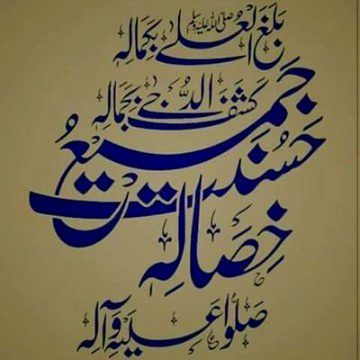 بلغ العلے بکمالہ ﷺ
کشف الدجے بجمالہ
حسنت جمیع
خصالہ
صلوا علیہ وآلہ